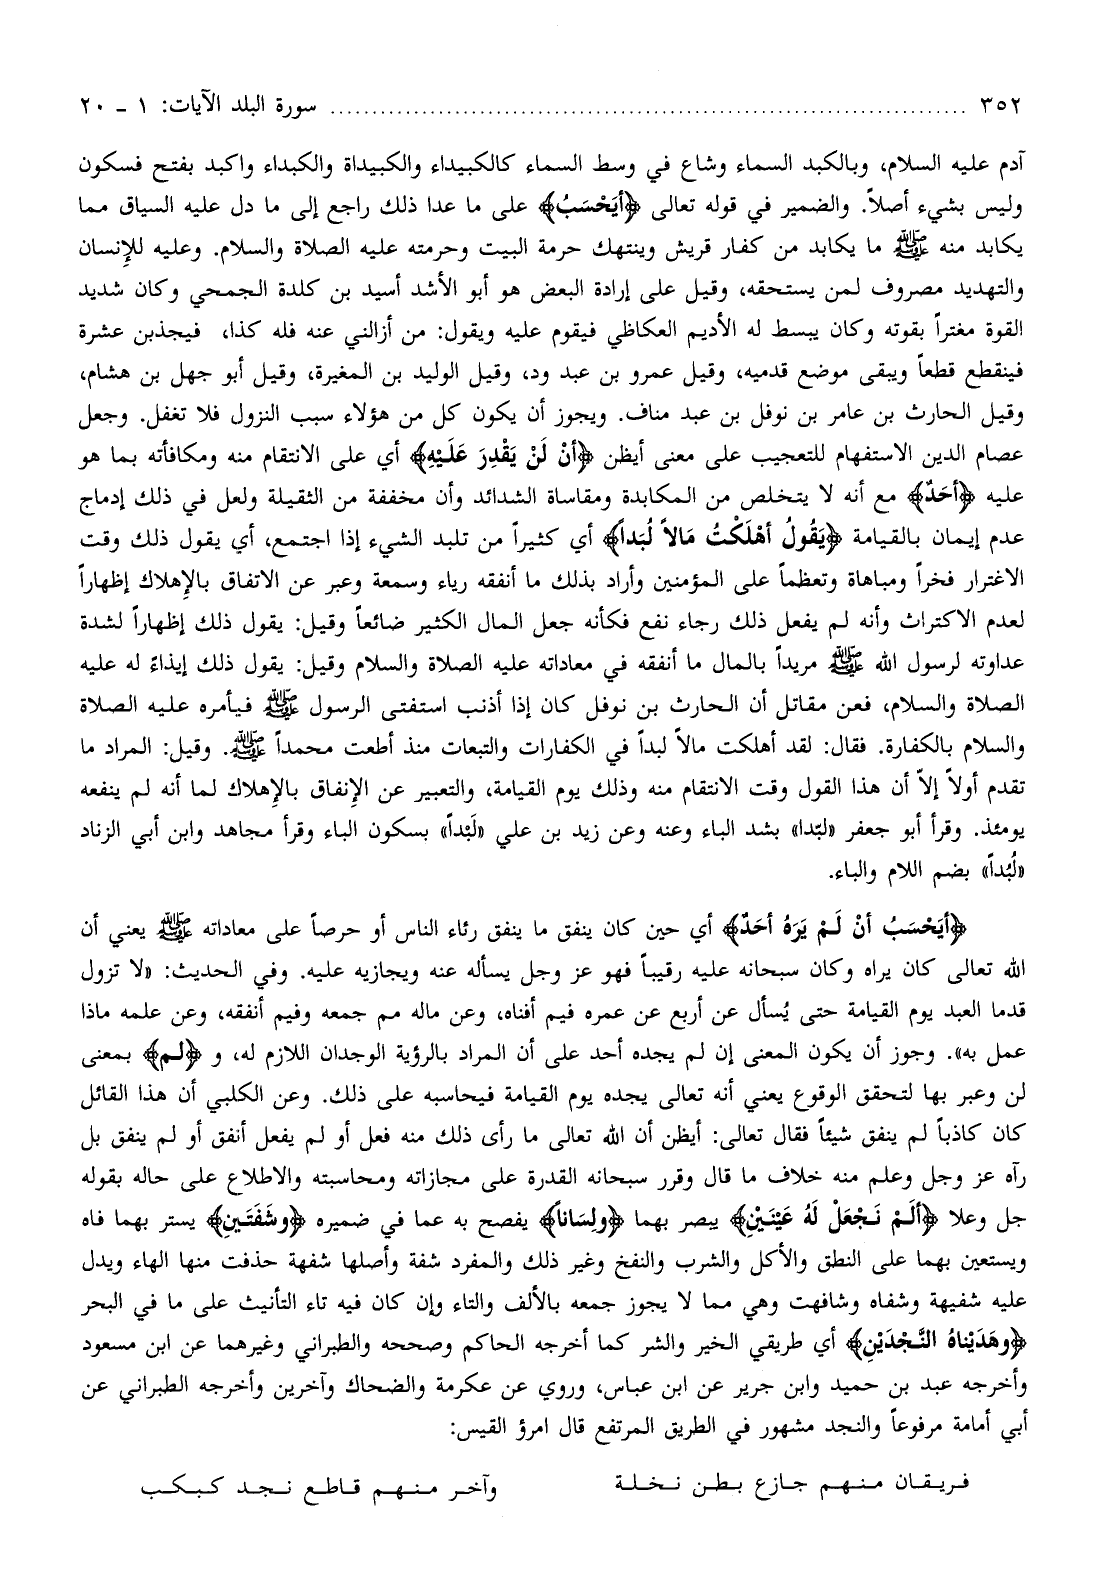 ٣٥٢ ........................................................................ سورة البلد الآيات: ١ ـ ٢٠
آدم عليه السلام، وبالكبد السماء وشاع في وسط السماء كالكبيداء والكبيداة والكبداء واكبد بفتح فسكون
وليس بشيء أصلاً. والضمير في قوله تعالى ﴿أيَحْسَبُ﴾ على ما عدا ذلك راجع إلى ما دل عليه السياق مما
يكابد منه ﷺ ما يكابد من كفار قريش وينتهك حرمة البيت وحرمته عليه الصلاة والسلام. وعليه للإنسان
والتهديد مصروف لمن يستحقه، وقيل على إرادة البعض هو أبو الأشد أسيد بن كلدة الجمحي وكان شديد
القوة مغتراً بقوته وكان يبسط له الأديم العكاظي فيقوم عليه ويقول: من أزالني عنه فله كذا، فيجذبن عشرة
فينقطع قطعاً ويبقى موضع قدميه، وقيل عمرو بن عبد ود، وقيل الوليد بن المغيرة، وقيل أبو جهل بن هشام،
وقيل الحارث بن عامر بن نوفل بن عبد مناف. ويجوز أن يكون كل من هؤلاء سبب النزول فلا تغفل. وجعل
عصام الدين الاستفهام للتعجيب على معنى أيظن ﴿أنْ لَنْ يَقْدِرَ عَلَيْهِ﴾ أي على الانتقام منه ومكافأته بما هو
عليه ﴿أحَدٌ﴾ مع أنه لا يتخلص من المكابدة ومقاساة الشدائد وأن مخففة من الثقيلة ولعل في ذلك إدماج
عدم إيمان بالقيامة ﴿يَقُولُ أهْلَكْتُ مَالاً لُبَداً﴾ أي كثيراً من تلبد الشيء إذا اجتمع، أي يقول ذلك وقت
الاغترار فخراً ومباهاة وتعظماً على المؤمنين وأراد بذلك ما أنفقه رياء وسمعة وعبر عن الاتفاق بالإهلاك إظهاراً
لعدم الاكتراث وأنه لم يفعل ذلك رجاء نفع فكأنه جعل المال الكثير ضائعاً وقيل: يقول ذلك إظهاراً لشدة
عداوته لرسول الله ﷺ مريداً بالمال ما أنفقه في معاداته عليه الصلاة والسلام وقيل: يقول ذلك إيذاءً له عليه
الصلاة والسلام، فعن مقاتل أن الحارث بن نوفل كان إذا أذنب استفتى الرسول ﷺ فيأمره عليه الصلاة
والسلام بالكفارة. فقال: لقد أهلكت مالاً لبداً في الكفارات والتبعات منذ أطعت محمداً ﷺ. وقيل: المراد ما
تقدم أولاً إلاّ أن هذا القول وقت الانتقام منه وذلك يوم القيامة، والتعبير عن الإنفاق بالإهلاك لما أنه لم ينفعه
يومئذ. وقرأ أبو جعفر «لبّدا» بشد الباء وعنه وعن زيد بن علي «لَبْداً» بسكون الباء وقرأ مجاهد وابن أبي الزناد
«لُبُداً» بضم اللام والباء.
﴿أيَحْسَبُ أنْ لَمْ يَرَهُ أحَدٌ﴾ أي حين كان ينفق ما ينفق رئاء الناس أو حرصاً على معاداته ﷺ يعني أن
الله تعالى كان يراه وكان سبحانه عليه رقيباً فهو عز وجل يسأله عنه ويجازيه عليه. وفي الحديث: «لا تزول
قدما العبد يوم القيامة حتى يُسأل عن أربع عن عمره فيم أفناه، وعن ماله مم جمعه وفيم أنفقه، وعن علمه ماذا
عمل به». وجوز أن يكون المعنى إن لم يجده أحد على أن المراد بالرؤية الوجدان اللازم له، و ﴿لم﴾ بمعنى
لن وعبر بها لتحقق الوقوع يعني أنه تعالى يجده يوم القيامة فيحاسبه على ذلك. وعن الكلبي أن هذا القائل
كان كاذباً لم ينفق شيئاً فقال تعالى: أيظن أن الله تعالى ما رأى ذلك منه فعل أو لم يفعل أنفق أو لم ينفق بل
رآه عز وجل وعلم منه خلاف ما قال وقرر سبحانه القدرة على مجازاته ومحاسبته والاطلاع على حاله بقوله
جل وعلا ﴿ألَمْ نَجْعَلْ لَهُ عَيْنَيْنِ﴾ يبصر بهما ﴿ولِسَاناً﴾ يفصح به عما في ضميره ﴿وشَفَتَينِ﴾ يستر بهما فاه
ويستعين بهما على النطق والأكل والشرب والنفخ وغير ذلك والمفرد شفة وأصلها شفهة حذفت منها الهاء ويدل
عليه شفيهة وشفاه وشافهت وهي مما لا يجوز جمعه بالألف والتاء وإن كان فيه تاء التأنيث على ما في البحر
﴿وهَدَيْناهُ النَّجْدَيْنِ﴾ أي طريقي الخير والشر كما أخرجه الحاكم وصححه والطبراني وغيرهما عن ابن مسعود
وأخرجه عبد بن حميد وابن جرير عن ابن عباس، وروي عن عكرمة والضحاك وآخرين وأخرجه الطبراني عن
أبي أمامة مرفوعاً والنجد مشهور في الطريق المرتفع قال امرؤ القيس:
فريقان منهم جازع بطن نخلة وآخر منهم قاطع نجد كبكب